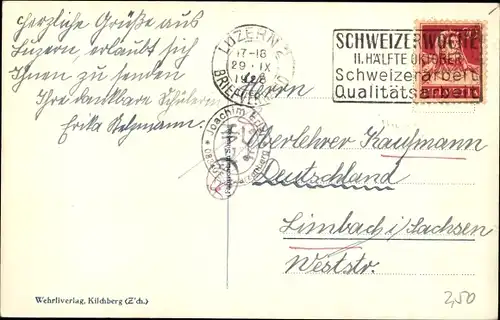 Herzliche Grüße aus
Luzern, erlaubt sich
Ihnen zu senden
Ihre dankbare Schülerin
Erika
LUZERN 2
17-18
29. IX
BRIEFVERSAND
SCHWEIZERWOCHE
II. HÄLFTE OKTOBER
Schweizerarbeit
Qualitätsarbeit
Herrn
Oberlehrer Kaufmann
Deutschland
Limbach i/Sachsen
Weststr.
Joachim
Wehrliverlag, Kilchberg (Z'ch.)
2,50